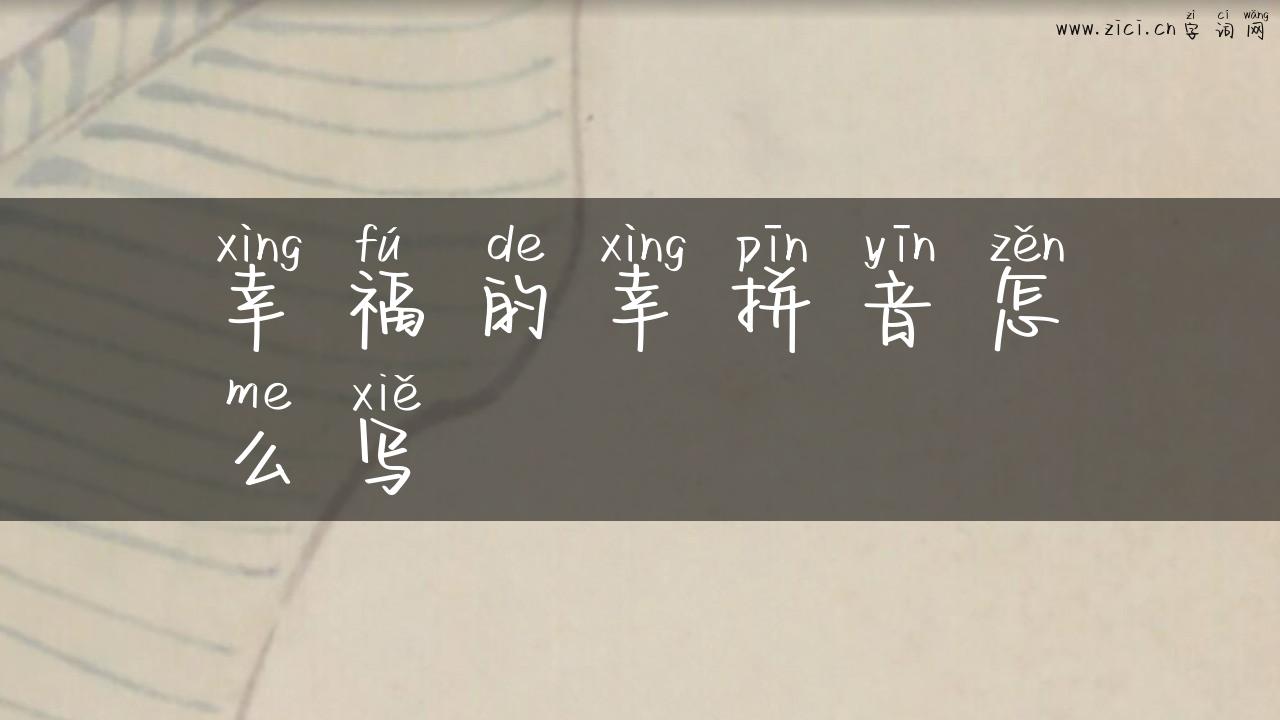 zì cí wǎng
www.zici.cn 字 词 网
xìng fú de xìng pīn yīn zěn
幸 福 的 幸 拼 音 怎
me xiě
么 写